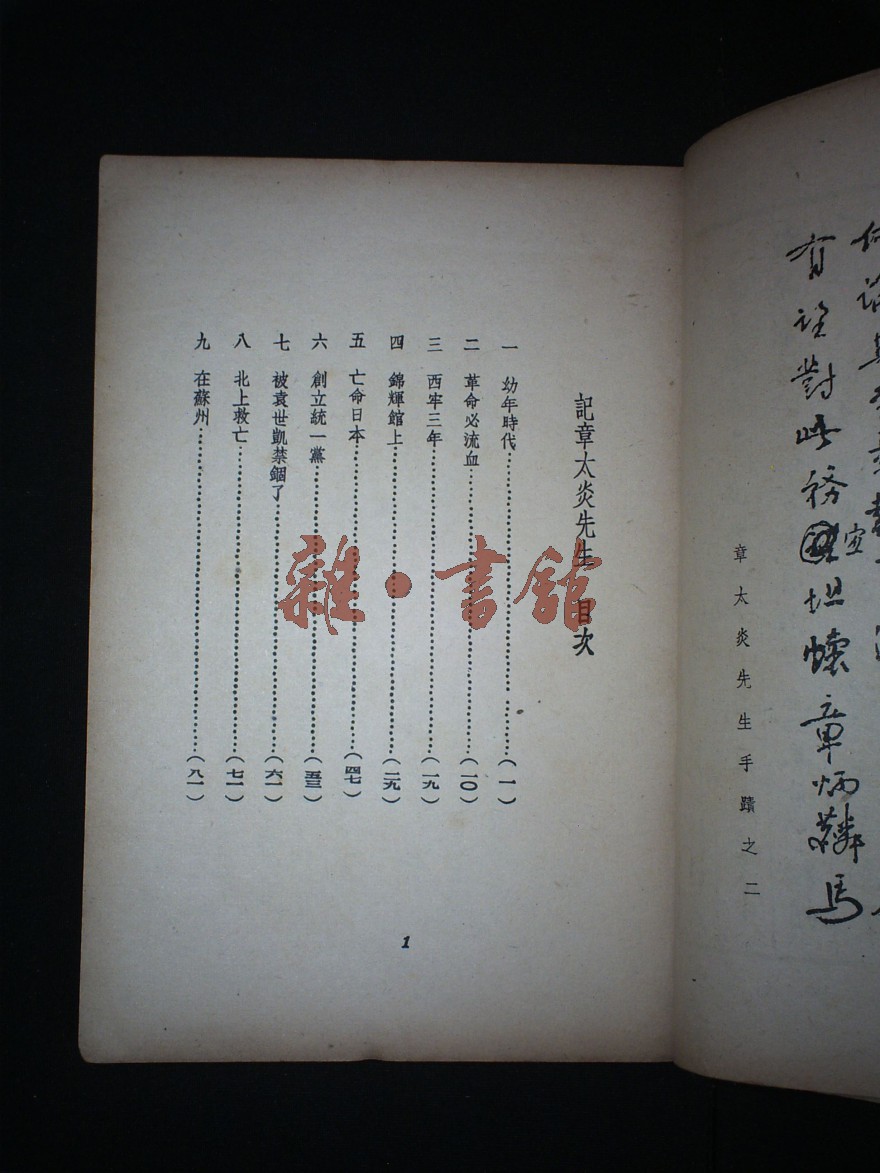 有對此務宜坦懷章炳麟馬
章太炎先生手蹟之二
記章太炎先生 目次
一 幼年時代………………(一)
二 革命必流血………………(一〇)
三 西牢三年………………(一九)
四 錦輝館上………………(二九)
五 亡命日本………………(四七)
六 創立統一黨………………(五三)
七 被袁世凱禁錮了………………(六一)
八 北上救亡………………(七一)
九 在蘇州………………(八一)
1
雜·書館